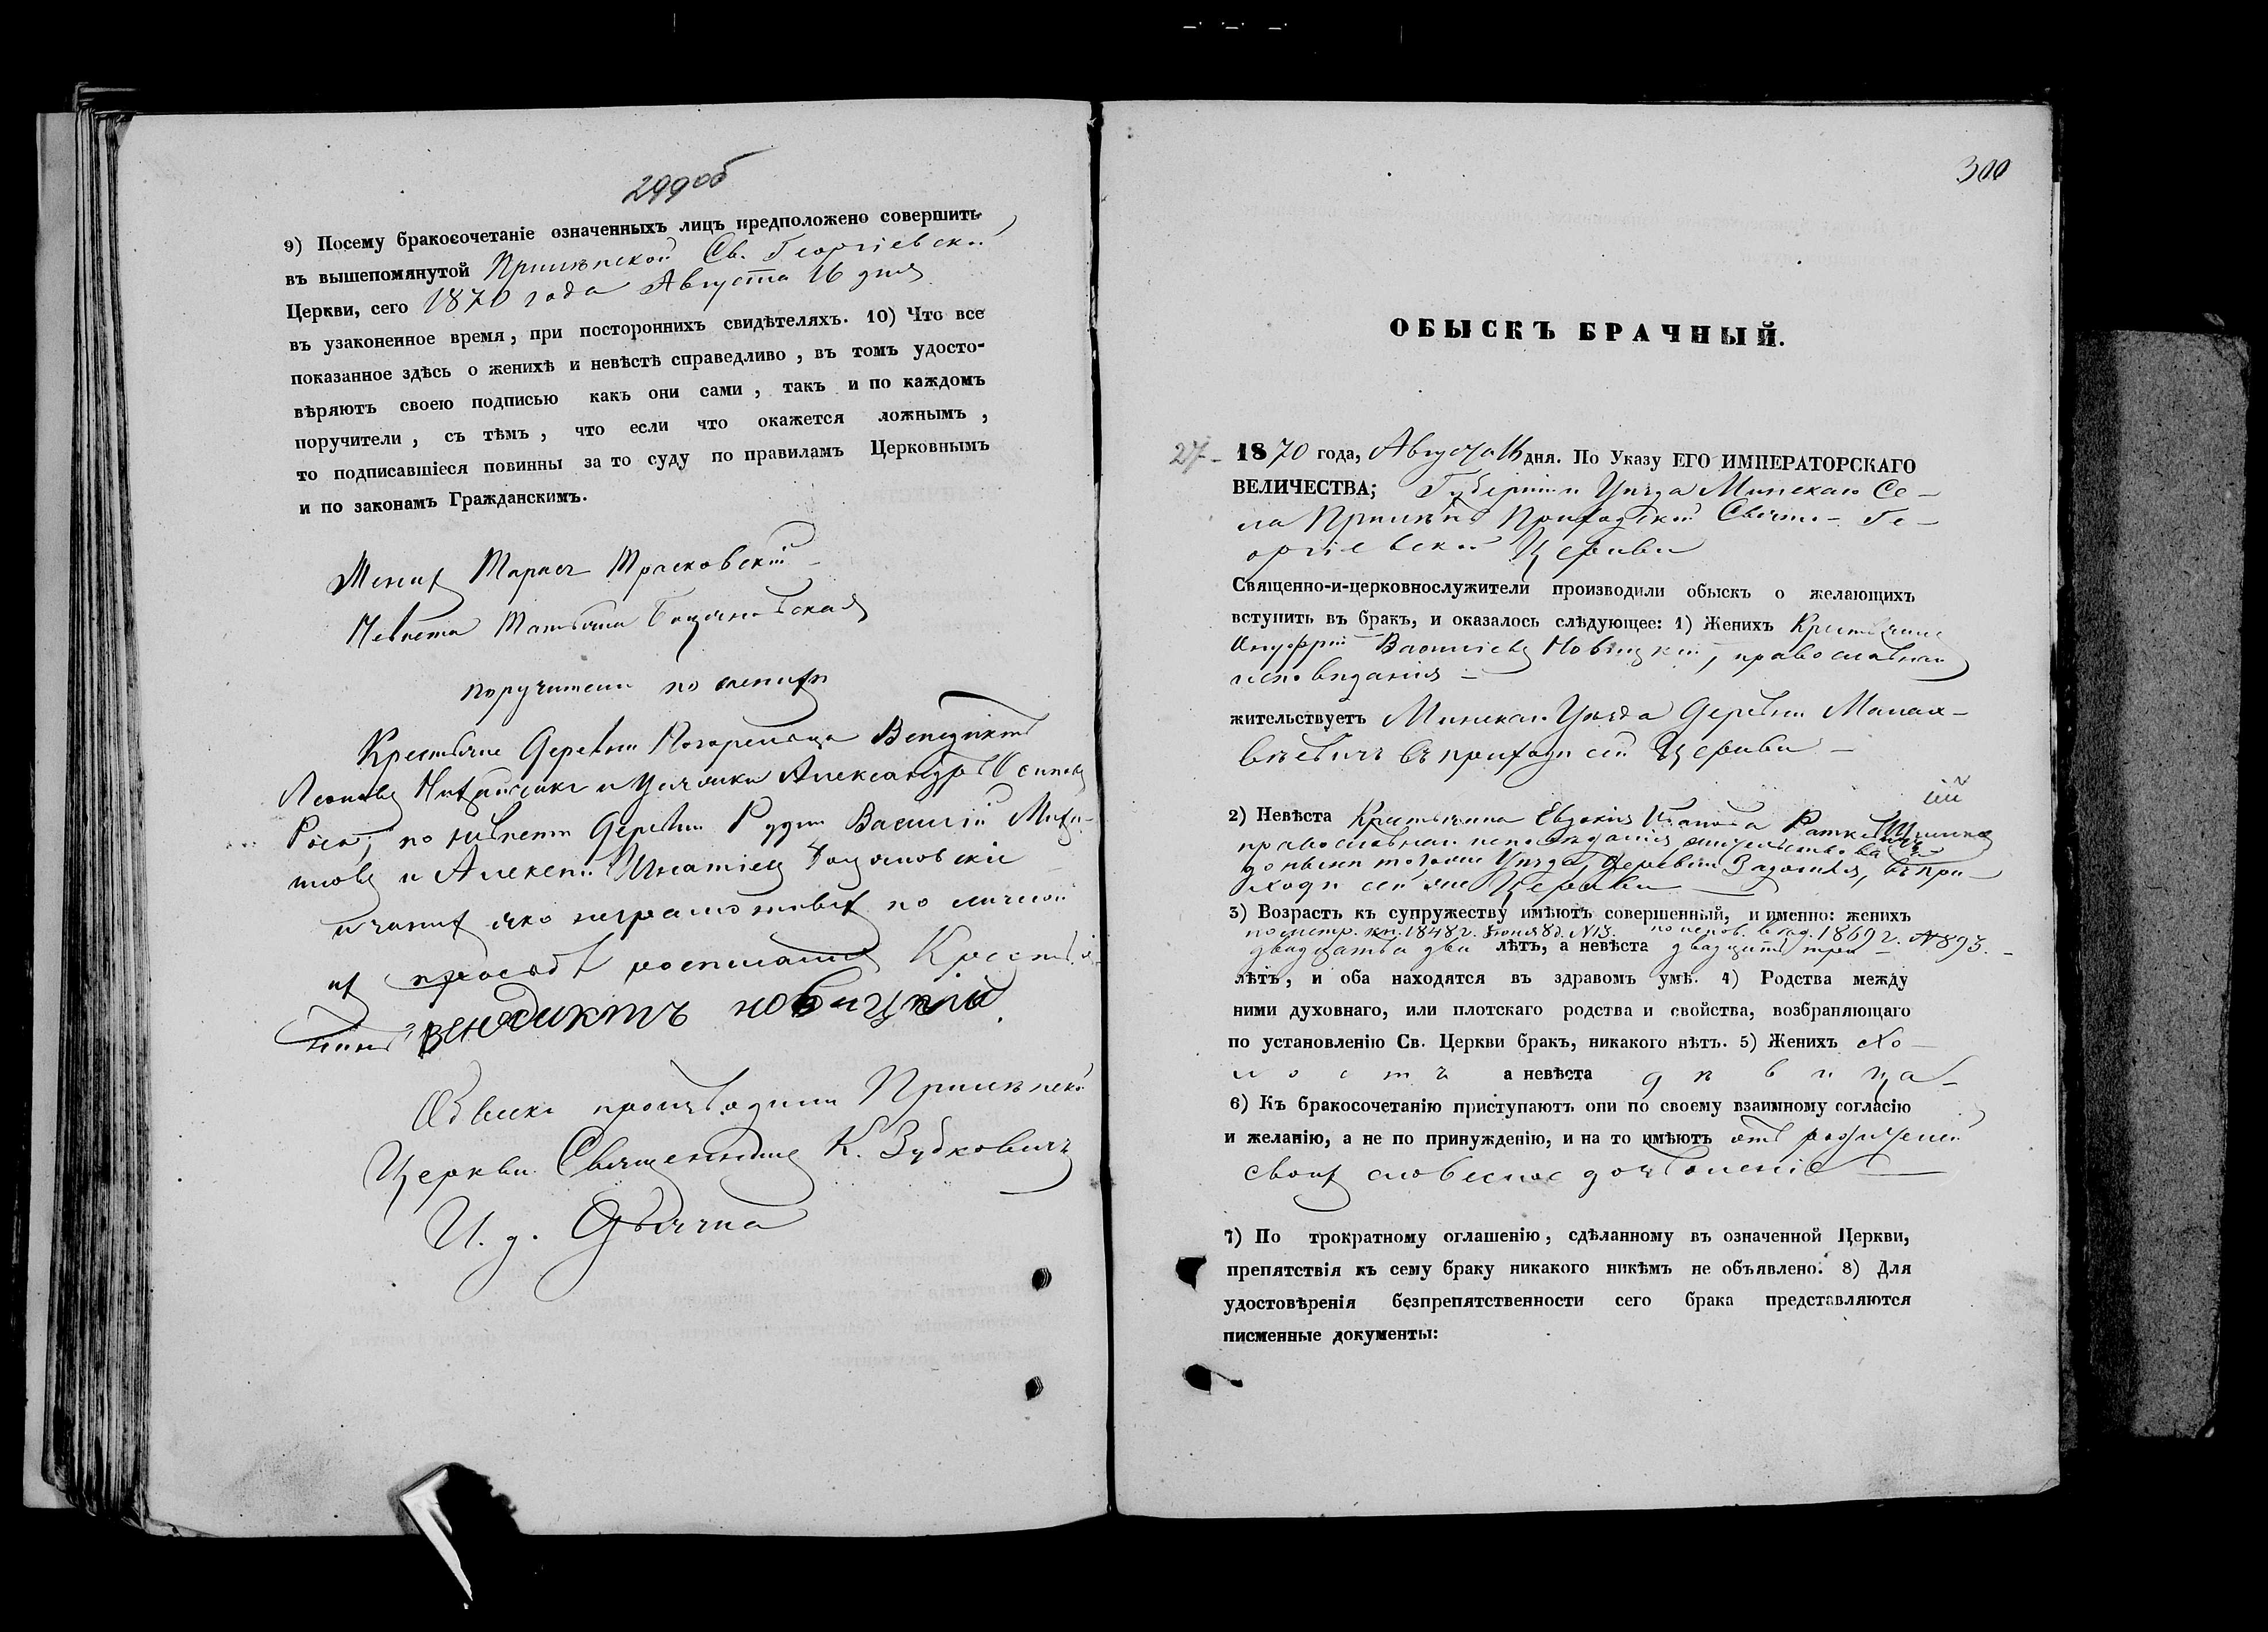 299об
9) Посему бракосочетаніе означенныхъ лицъ предположено совершить
въ вышепомянутой Прилѣпской Св. Георгіевской
Церкви, сего 1870 года Августа 16 дня
въ узаконенное время, при постороннихъ свидѣтеляхъ. 10) Что все
показанное здѣсь о женихѣ и невѣстѣ справедливо, въ томъ удосто-
вѣряютъ своею подписью какъ они сами, такъ и по каждомъ
поручители, съ тѣмъ, что если что окажется ложнымъ,
то подписавшіеся повинны за то суду по правиламъ Церковнымъ
и по законамъ Гражданскимъ.
Женихъ Тарасъ Трасковскій
Невѣста Татьяна
поручители по женихѣ
Крестьяне Деревни Погорельца Венедиктъ
Леоновъ и Александръ Осиповъ
по невѣстѣ Деревни Рудни Василій
и Алексѣй Игнатіевъ
а за нихъ яко неграмотныхъ по личной
ихъ просьбѣ росписался Крестья-
нинъ Венедиктъ новицкій
Обыскъ производили Прилѣпской
Церкви Священникъ К. Зубковичъ
И. д. Дьячка
300
ОБЫСКЪ БРАЧНЫЙ.
27- 1870 года, Августа 16 дня. По Указу ЕГО ИМПЕРАТОРСКАГО
ВЕЛИЧЕСТВА; Губерніи и Уѣзда Минскаго Се-
ла Прилѣпъ Приходской Свято-Ге-
оргіевской Церкви
Священно-и-церковнослужители производили обыскъ о желающихъ
вступить въ бракъ, и оказалось слѣдующее: 1) Женихъ Крестьянинъ
Онуфрій Василіевъ Новицкій, православнаго
исповѣданія -
жительствуетъ Минскаго Уѣзда Деревни
въ приходѣ сей Церкви -
2) Невѣста Крестьянка Евдокія Иванова
православнаго исповѣданія, жительствовала
до нынѣ того же Уѣзда, Деревни въ при-
ходѣ сей же Церкви
3) Возрастъ къ супружеству имѣютъ совершенный, и именно: женихъ
по метр. кн. 1848 г. Іюня 8 д. N 13. по испов. вѣд. 1869 г. N 893.
двадцать два лѣтъ, а невѣста двадцать три -
лѣтъ, и оба находятся въ здравомъ умѣ. 4) Родства между
ними духовнаго, или плотскаго родства и свойства, возбраняющаго
по установленію Св. Церкви бракъ, никакого нѣтъ. 5) Женихъ хо-
лостъ а невѣста дѣвица -
6) Къ бракосочетанію приступаютъ они по своему взаимному согласію
и желанію, а не по принужденію, и на то имѣютъ отъ родителей
своихъ словесное дозволеніе
7) По трократному оглашенію, сдѣланному въ означенной Церкви,
препятствія къ сему браку никакого никѣмъ не объявлено. 8) Для
удостовѣренія безпрепятственности сего брака представляются
писменные документы: